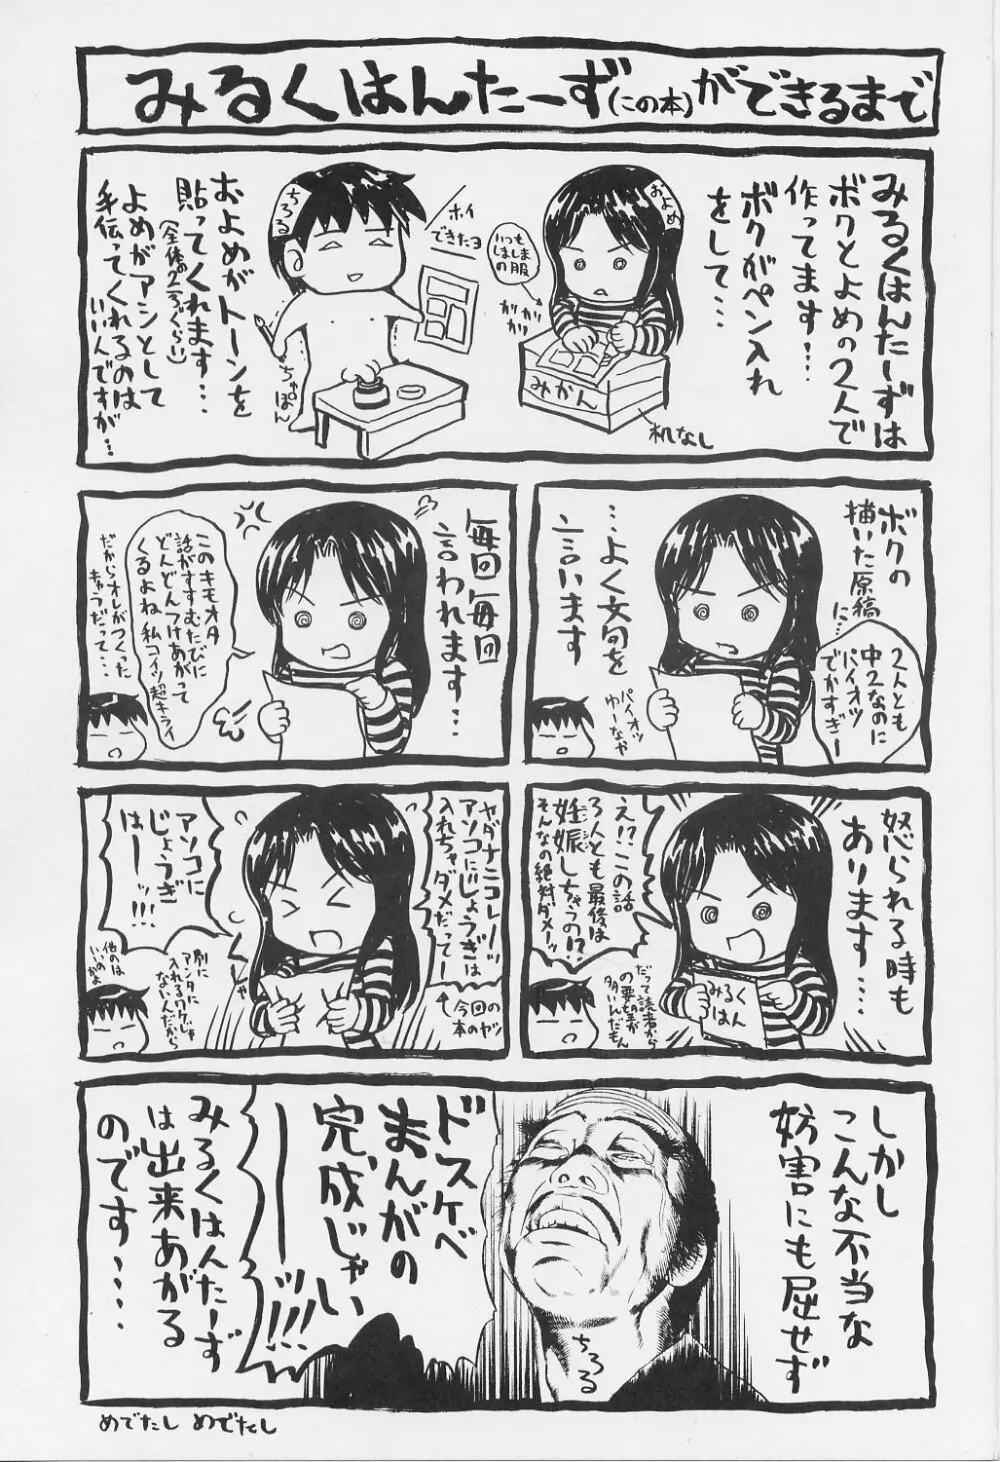 みるくはんたーず(この本)ができるまで
みるくはんたーずは
ボクとよめの2人で
作ってます……
ボクがペン入れ
をして…
およめ
いつも
しましま
の服
ガガガガ
みかん
机なし
ホイ
できたヨ
ちろる
ちゅぽん
およめがトーンを
貼ってくれます…
(全体の2〜3ぐらい)
よめがアシとして
手伝ってくれるのは
いいんですが…
ボクの
描いた原稿
に…
2人とも
中2なのに
パイオツ
でかすぎー
…よく文句を
言います
パイオツ
ゆーなや
毎回毎回
言われます…
このキモオタ
話がすすむたびに
どんどんつけあがって
くるよね 私コイツ超キライ
だからオレがつくった
キャラだって…
怒られる時も
あります……
え!?この話
3人とも最後は
妊娠しちゃうの!?
そんなの絶対ダメーッ
だって読者から
の要望が
多いんだもん
みるく
はん
ヤダナニコレーッ
アソコにじょうぎは
入れちゃダメだってー
今回の
本のヤツ
アソコに
じょうぎ
はーーッ!!!
別に
アンタに
入れるワケじゃ
ないんだから
他のは
いいのかよ
しかし
こんな不当な
妨害にも屈せず
ドスケベ
まんがの
完成じゃい
ーーッ!!!
ちろる
みるくはんたーず
は出来あがる
のです……
めでたし めでたし